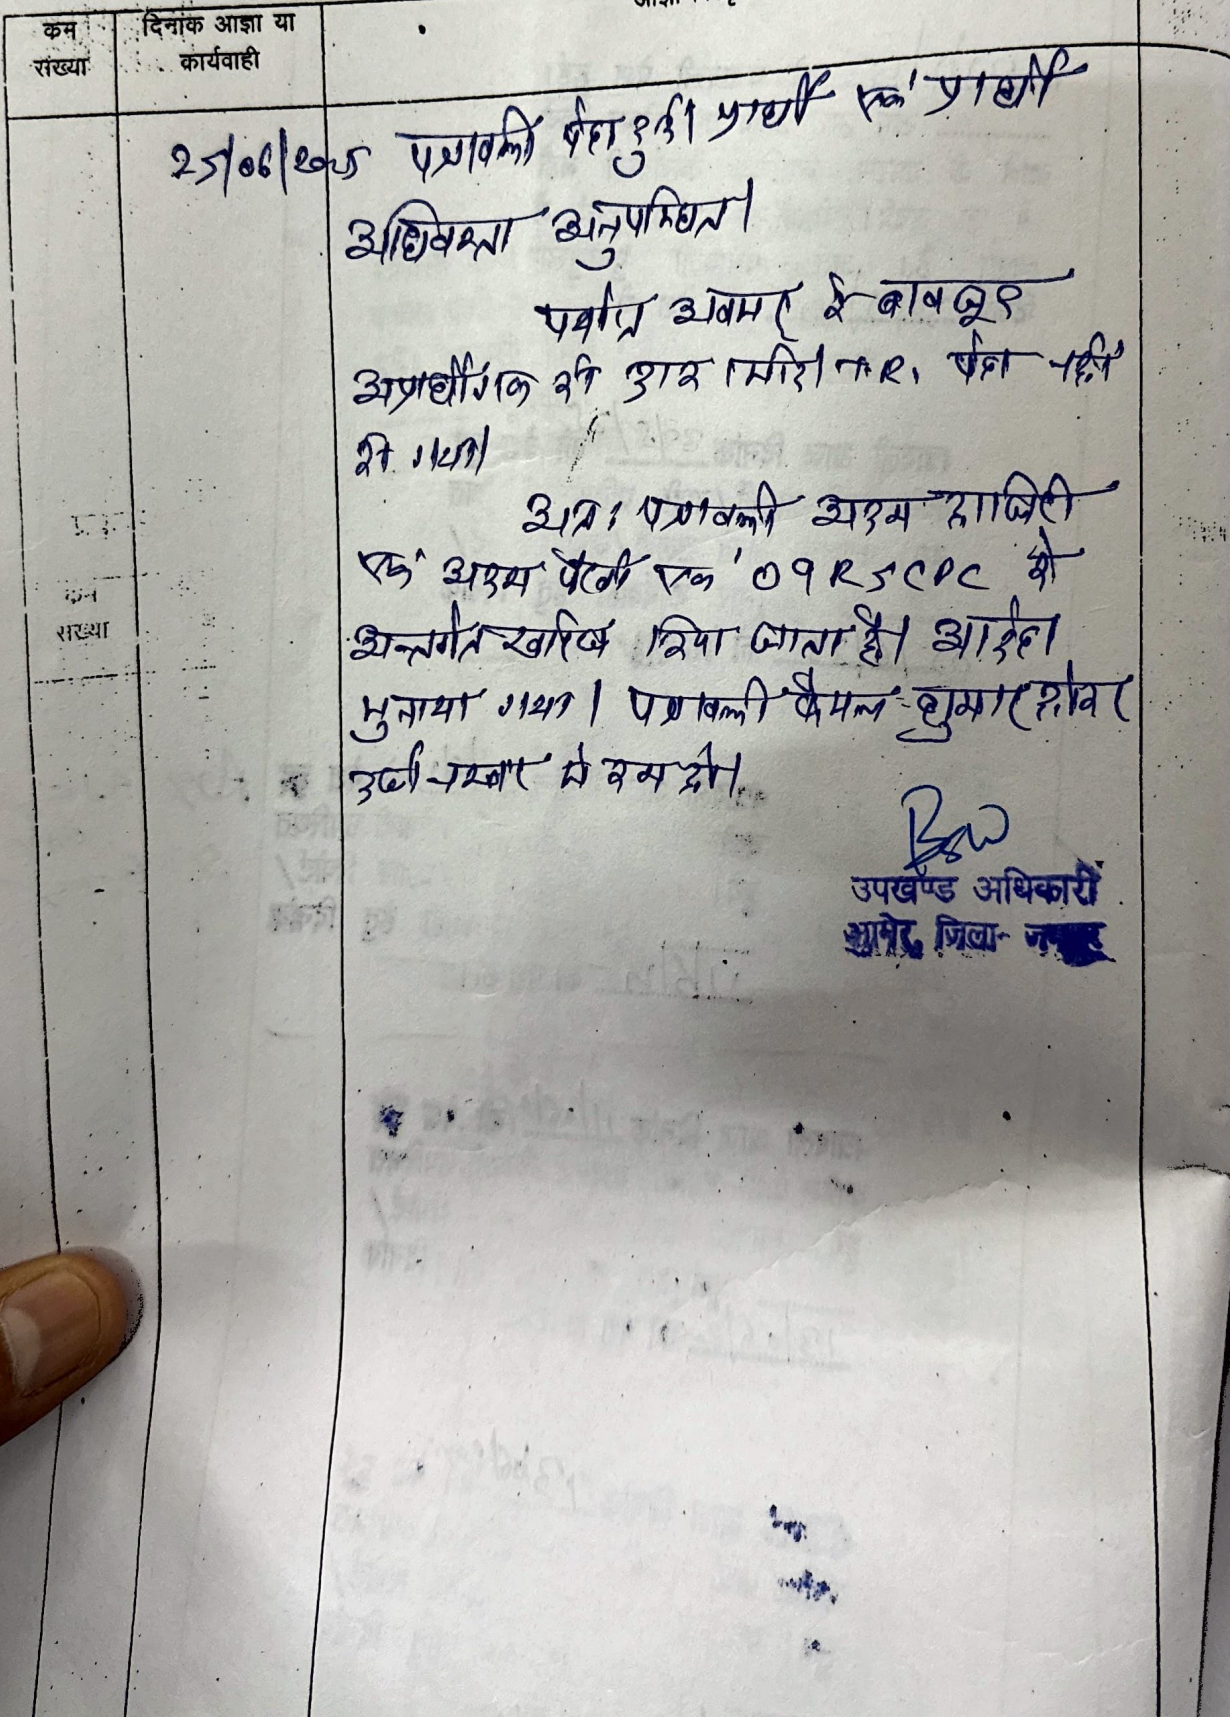 कम संख्या
दिनांक आज्ञा या कार्यवाही
25/06/2025 पत्रावली पेश हुई। प्रार्थी एवं प्रार्थी
अधिवक्ता अनुपस्थित।
पर्याप्त अवसर के बावजूद
अप्रार्थीगण की पेश नहीं
की गयी।
अतः पत्रावली अदम हाजिरी
एवं अदम पैरवी एवं 09R5CPC के
अन्तर्गत खारिज किया जाता है। आदेश
सुनाया गया। पत्रावली फैसल शुमार होकर
नम्बर से कम हो।
उपखण्ड अधिकारी
आमेर जिला-
संख्या